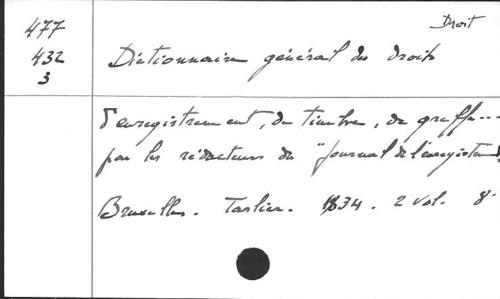 Droit
477
432
3
Dictionnaire général des droits
d'enregistrement, de timbre, de greffe...
par les rédacteurs du "Journal de l'enregistrement,
Bruxelles. Tarlier. 1834. 2 vol. 8°